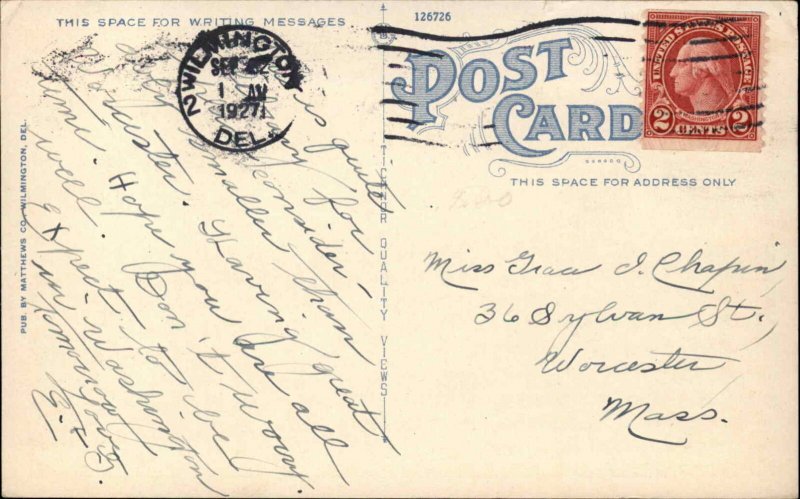 THIS SPACE FOR WRITING MESSAGES
126726
WILMINGTON
SEP 22
1 AM
1927
DEL.
2
POST
CARD
UNITED STATES POSTAGE
WASHINGTON
2 CENTS 2
THIS SPACE FOR ADDRESS ONLY
is quite
city for
consider-
smaller than
Worcester. Having great
time. Hope you are all
well. Don't worry.
Expect to be
in Washington
tomorrow
Love,
E.
Miss Grace I. Chapin
36 Sylvan St.,
Worcester
Mass.
PUB. BY MATTHEWS CO., WILMINGTON, DEL.
TICHNOR QUALITY VIEWS